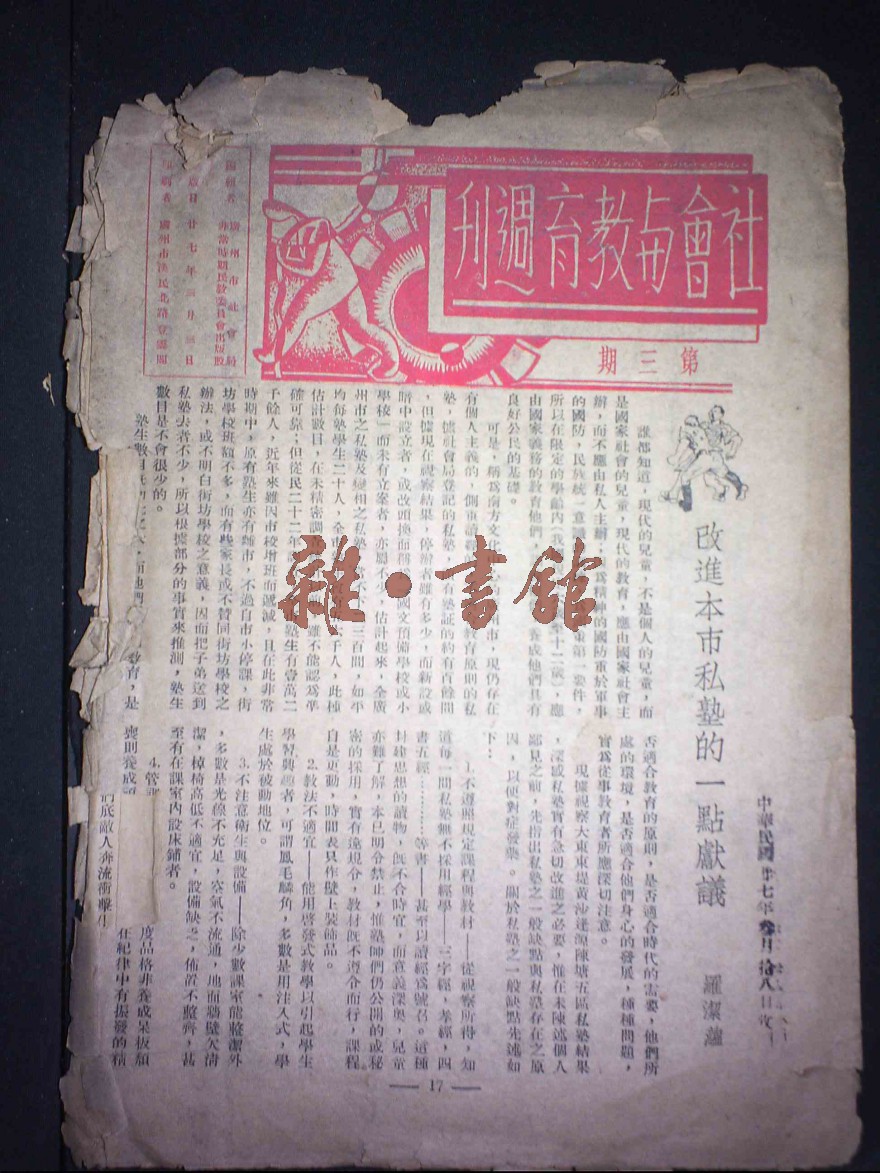 社會與教育週刊
第三期
編輯者 廣州市社會局
非常時期民教委員會出版股
廿七年三月三日
廣州市漢民北路登鄰閣
改進本市私塾的一點獻議
羅潔蘊
中華民國廿七年叁月拾八日收
誰都知道，現代的兒童，不是個人的兒童，而
是國家社會的兒童，現代的教育，應由國家社會主
辦，而不應由私人主辦
的國防，民族統一意識 為精神的國防重於軍事
第一要件，
所以在限定的學齡內
十二歲），應
由國家義務的教育他們 養成他們具有
良好公民的基礎。
可是，稱為南方文化 州市，現仍存在
有個人主義的，側重讀經 教育原則的私
塾，據社會局登記的私塾，領有塾証的約有百餘間
，但據現在視察結果，停辦者雖有多少，而新設或
暗中設立者，或改頭換面 國文預備學校或小
學校」而未有立案者，亦屬不少，估計起來，全廣
州市之私塾及變相之私塾 三百間，如平
均每塾學生二十人，全 千人，此種
估計數目，在未精密調 雖不能認為準
確可靠；但從民二十二年 塾生有壹萬二
千餘人，近年來雖因市校增班而遞減，且在此非常
時期中，原有塾生亦有離市，不過自市小停課，街
坊學校班額不多，而有些家長或不贊同街坊學校之
辦法，或不明白街坊學校之意義，因而把子弟送到
私塾去者不少，所以根據部分的事實來推測，塾生
數目是不會很少的。
塾生數目既
教育，是
否適合教育的原則，是否適合時代的需要，他們所
處的環境，是否適合他們身心的發展，種種問題，
實為從事教育者所應深切注意。
現據視察大東東堤黃沙逢源陳塘五區私塾結果
，深感私塾實有急切改進之必要，惟在未陳述個人
鄙見之前，先指出私塾之一般缺點與私塾存在之原
因，以便對症發藥。關於私塾之一般缺點先述如
下：
1.不遵照規定課程與教材——從視察所得，知
道每一間私塾無不採用經學——三字經，孝經，四
書五經…………等書——甚至以讀經為號召。這種
封建思想的讀物，既不合時宜，而意義深奧，兒童
亦難了解，本已明令禁止，惟塾師們仍公開的或秘
密的採用，實有違規令，教材既不遵令而行，課程
自是更動，時間表只作壁上裝飾品。
2.教法不適宜——能用啓發式教學以引起學生
學習興趣者，可謂鳳毛麟角，多數是用注入式，學
生處於被動地位。
3.不注意衛生與設備——除少數課室能整潔外
，多數是光線不充足，空氣不流通，地面牆壁欠清
潔，棹椅高低不適宜，設備缺乏，佈置不整齊，甚
至有在課室內設床鋪者。
4.管
度品格非養成呆板頹
喪則養成
在紀律中有振發的精
們底敵人奔流衝擊
— 17 —
雜·書館